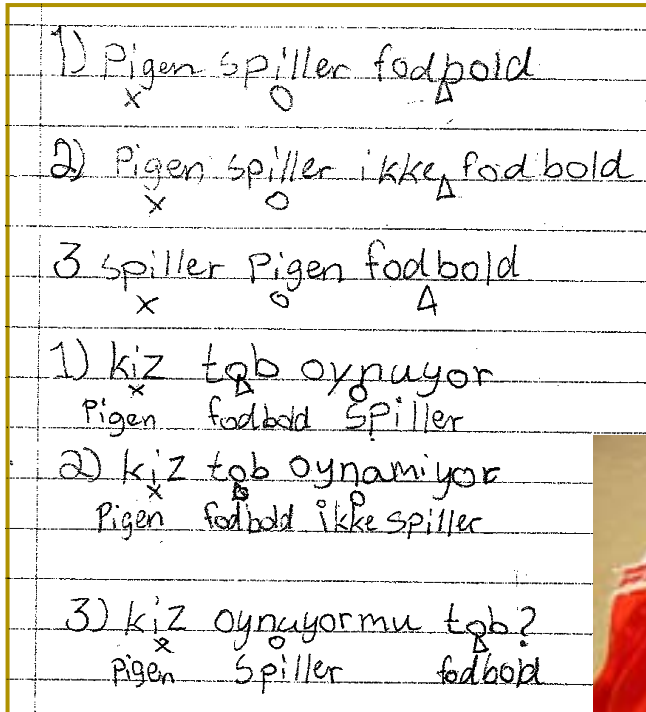 1) Pigen spiller fodbold
2) Pigen spiller ikke fodbold
3 spiller Pigen fodbold
1) kiz tob oynuyor
Pigen fodbold Spiller
2) kiz tob oynamiyor
Pigen fodbold ikke spiller
3) kiz oynuyormu tob?
pigen Spiller fodbold